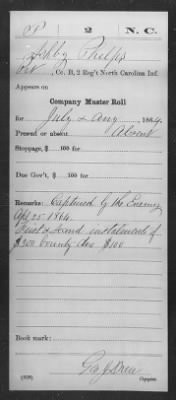 P 2 N. C.
Ashby Phelps
Pvt, Co. B, 2 Reg't North Carolina Inf.
Appears on
Company Muster Roll
for July & Aug, 1864.
Present or absent Absent
Stoppage, $ 100 for
Due Gov't, $ 100 for
Remarks: Captured by the Enemy
Apl 25 1864.
First & Second instalment of
$300 bounty due $100
Book mark:
Copyist.